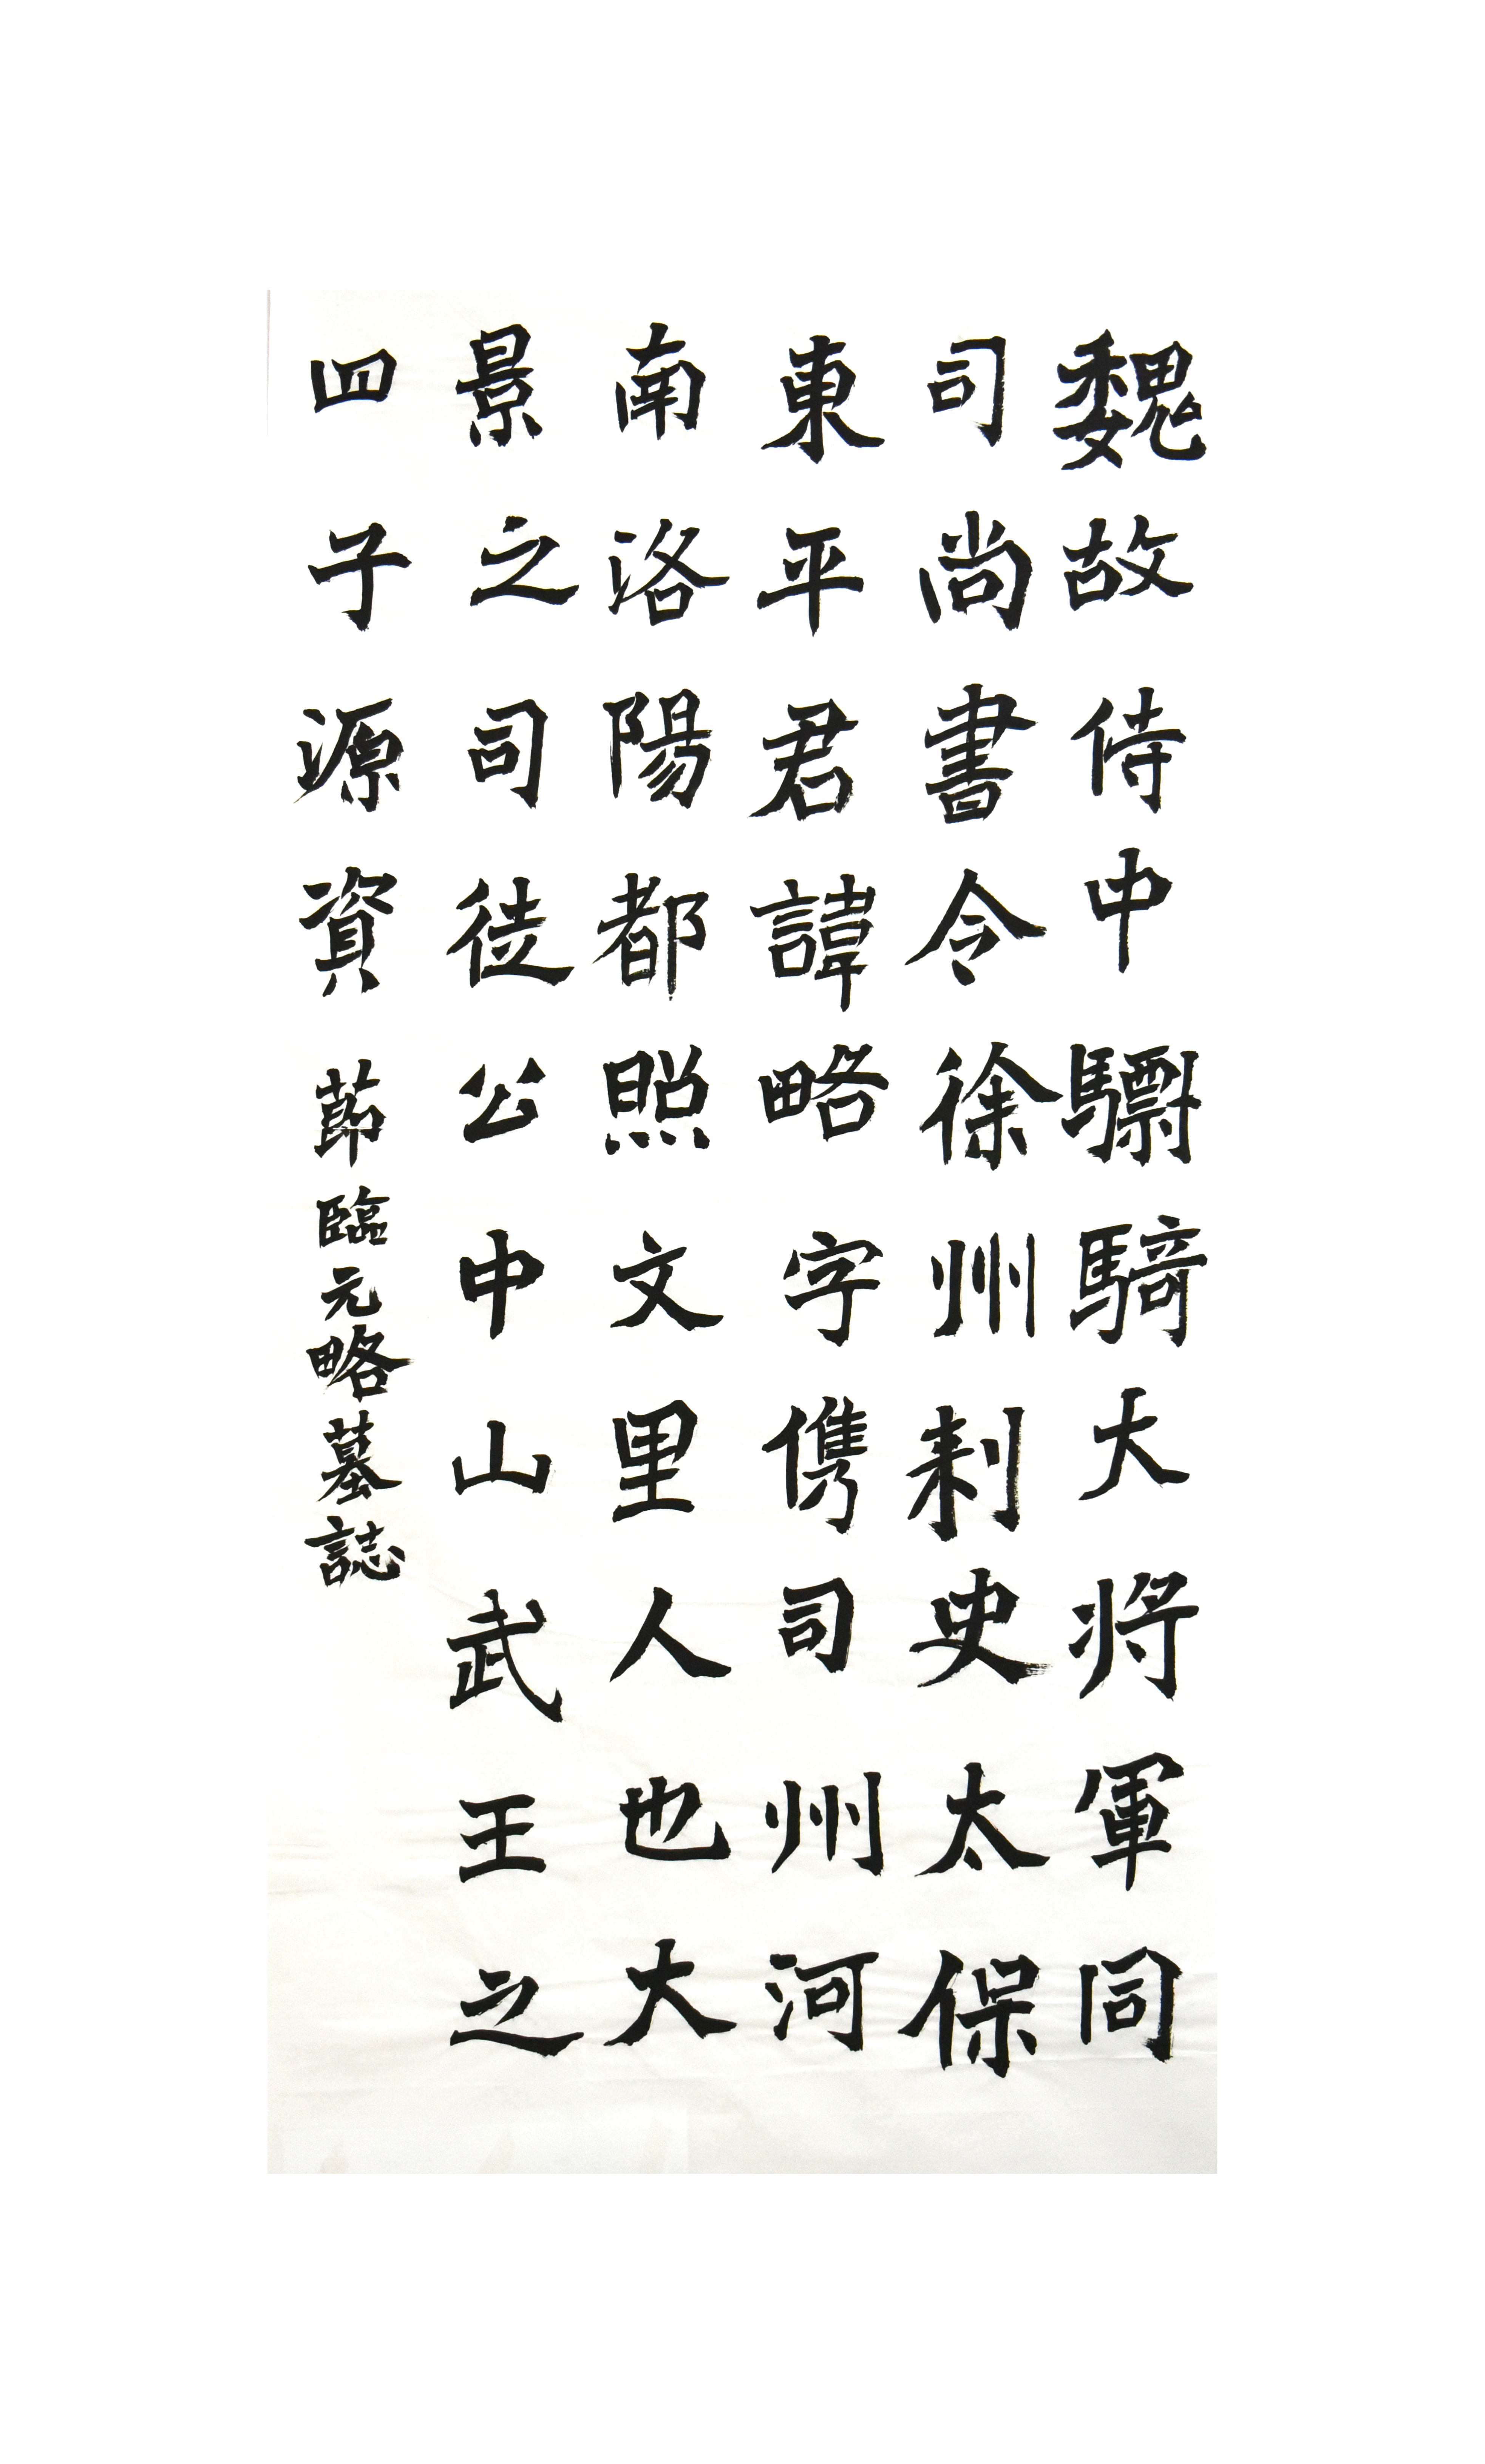 魏故侍中驃騎大将軍同
司尚書令徐州刺史太保
東平君諱略字儁司州河
南洛陽都照文里人也大
景之司徒公中山武王之
四子源資 節臨元略墓誌